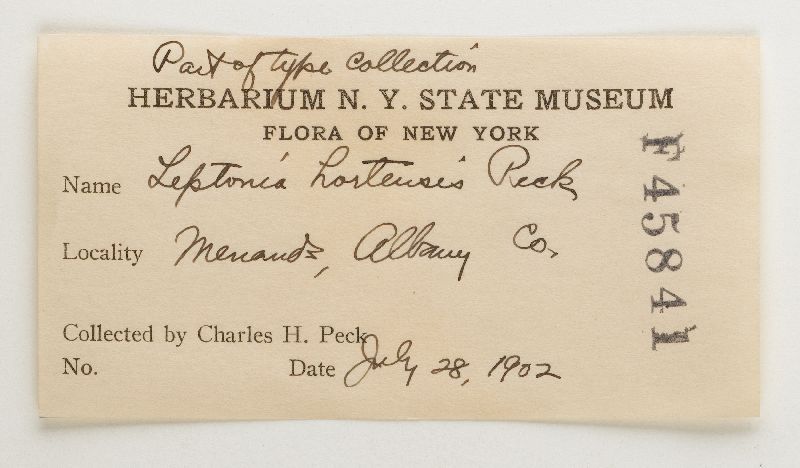 Part of type collection
HERBARIUM N. Y. STATE MUSEUM
FLORA OF NEW YORK
Name Leptonia hortensis Peck
Locality Menands, Albany Co.
Collected by Charles H. Peck
No. Date July 28, 1902
F45841